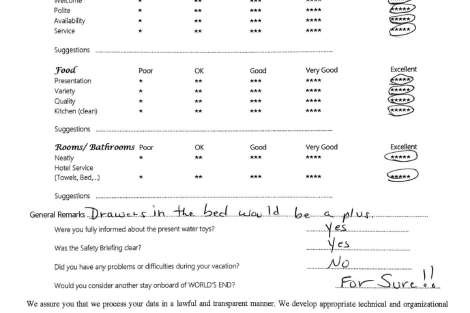 Welcome * ** *** **** *****
Polite * ** *** **** *****
Availability * ** *** **** *****
Service * ** *** **** *****
Suggestions
Food Poor OK Good Very Good Excellent
Presentation * ** *** **** *****
Variety * ** *** **** *****
Quality * ** *** **** *****
Kitchen (clean) * ** *** **** *****
Suggestions
Rooms/Bathrooms Poor OK Good Very Good Excellent
Neatly * ** *** **** *****
Hotel Service
(Towels, Bed,..) * ** *** **** *****
Suggestions
General Remarks Drawers in the bed would be a plus.
Were you fully informed about the present water toys? Yes
Was the Safety Briefing clear? Yes
Did you have any problems or difficulties during your vacation? No
Would you consider another stay onboard of WORLD'S END? For Sure!!
We assure you that we process your data in a lawful and transparent manner. We develop appropriate technical and organizational